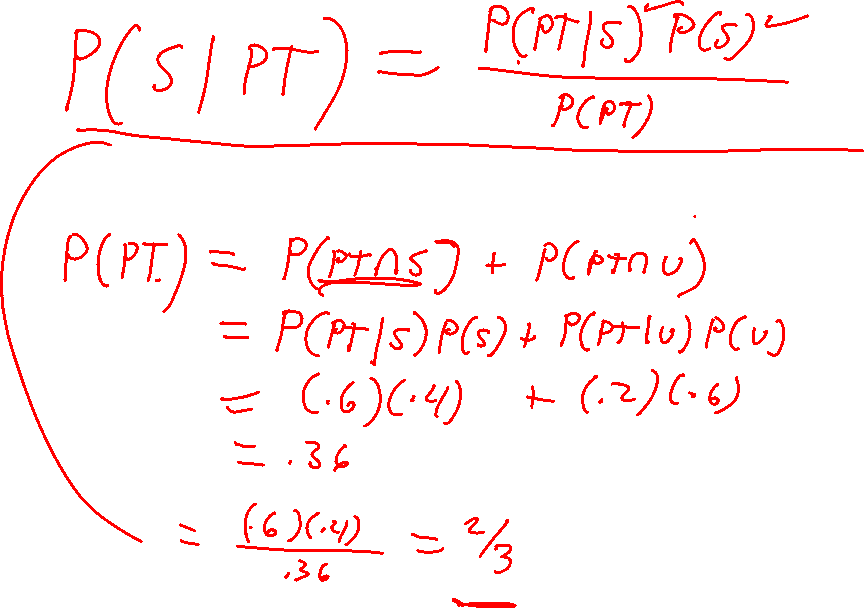 P(S|PT) = P(PT|S) ✓ P(S) ✓ / P(PT)
P(PT) = P(PT∩S) + P(PT∩U)
= P(PT|S)P(S) + P(PT|U)P(U)
= (.6)(.4) + (.2)(.6)
= .36
= (.6)(.4) / .36 = 2/3